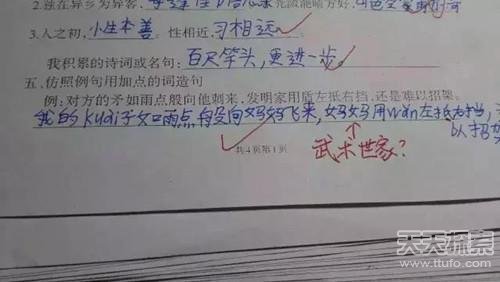 2.独在异乡为异客,每逢佳节倍思亲
3.人之初,小生本善。性相近,习相远。
我积累的诗词或名句:百尺竿头,更进一步。
五、仿照例句用加点的词造句
例:对方的矛如雨点般向他刺来,发明家用盾左抵右挡,还是难以招架。
我的kuài子如雨点般向妈妈飞来,妈妈用wǎn左抵右挡,
以招架
共4页第1页
武术世家?
天天探索
www.ttufo.com